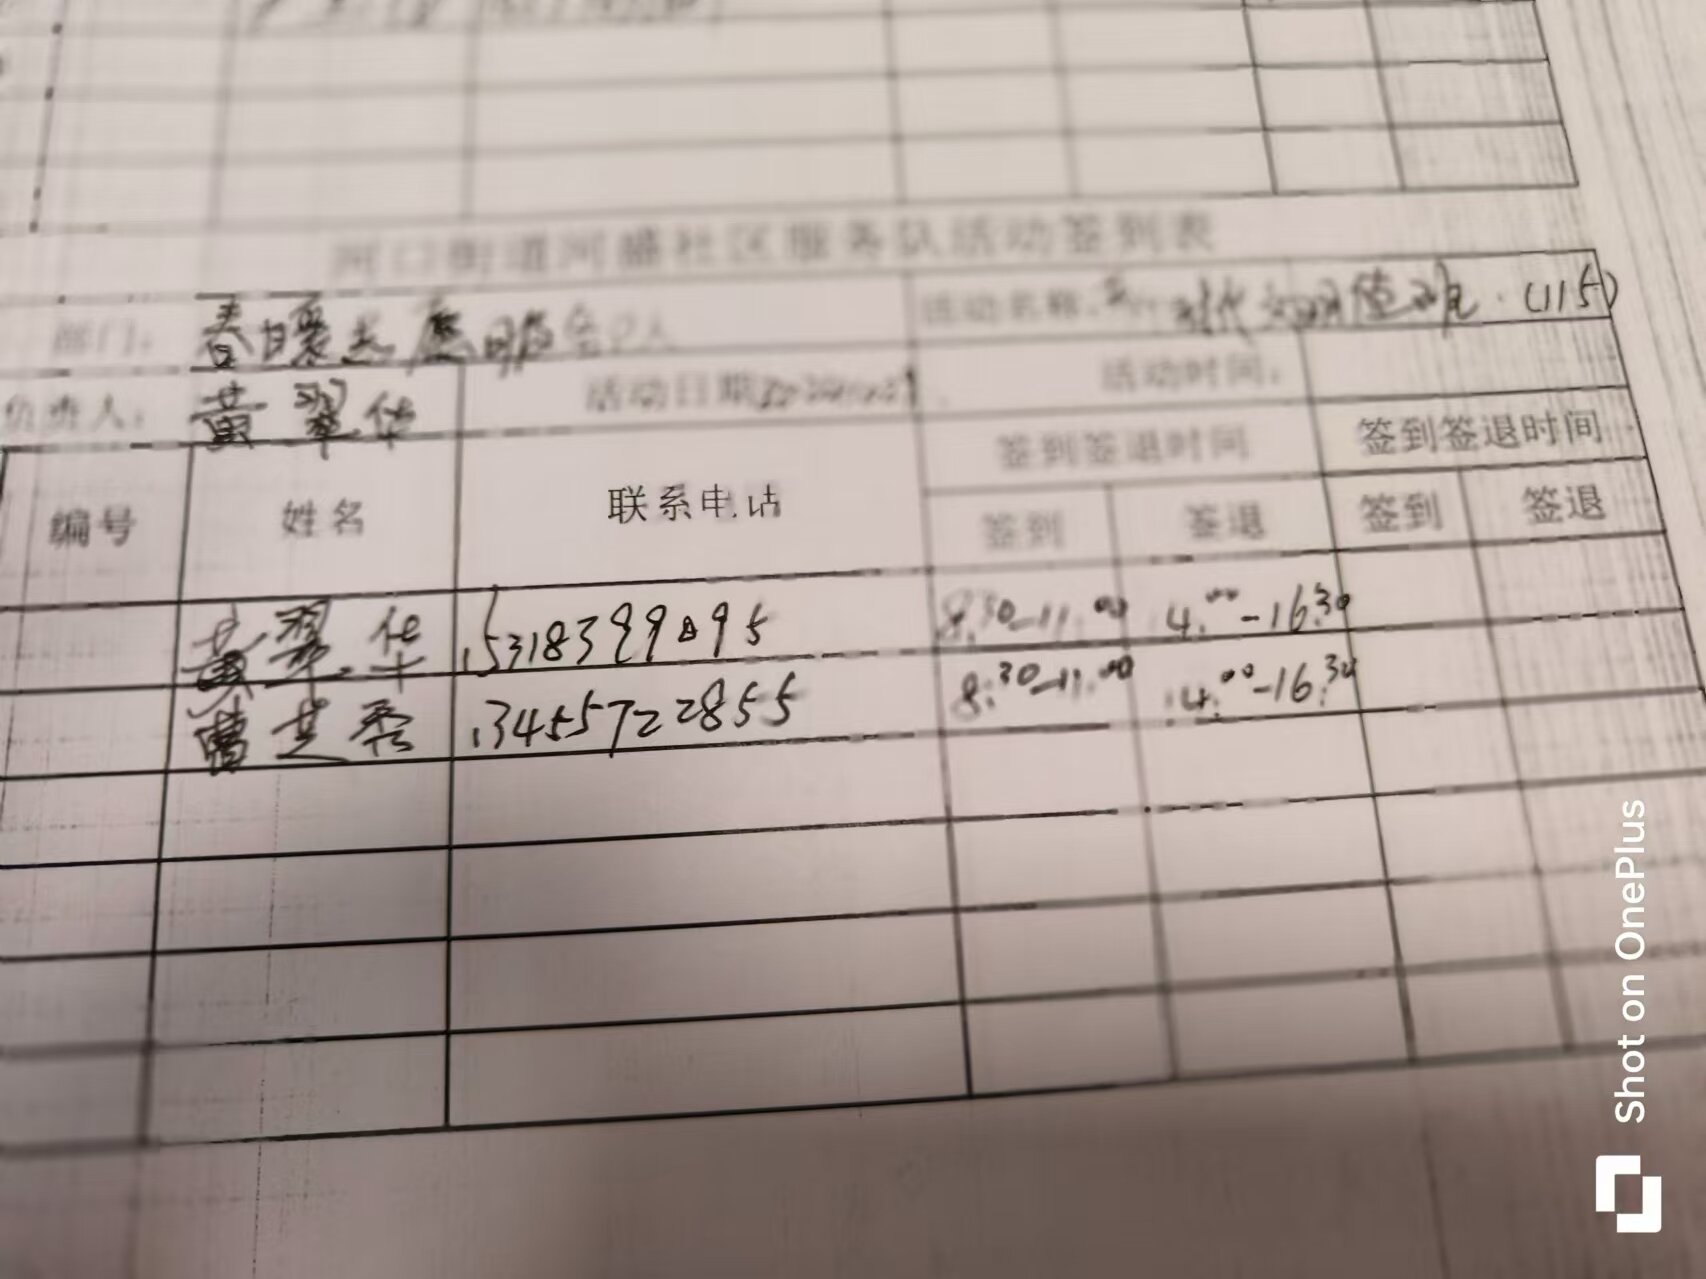 河口街道河盛社区服务队活动签到表
部门： 春暖志愿服务队 活动名称： 时代文明值班（115）
负责人： 黄翠华 活动日期 活动时间：
编号 姓名 联系电话 签到签退时间 签到签退时间
签到 签退 签到 签退
黄翠华 15318399095 8:30-11:00 14:00-16:30
曹芝秀 13455722855 8:30-11:00 14:00-16:30
Shot on OnePlus